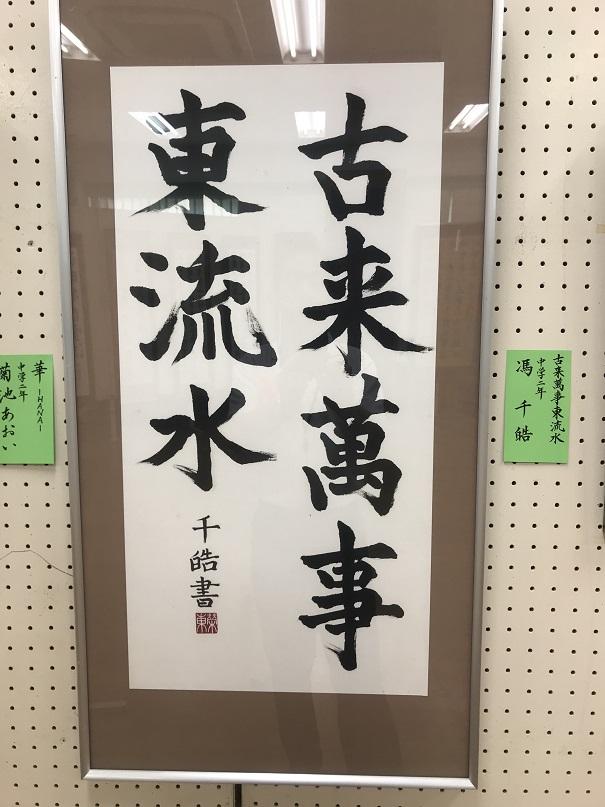 古来萬事
東流水
千皓書
古来萬事東流水
中学二年
馮 千皓
華 -HANA-
中学二年
菊池あおい